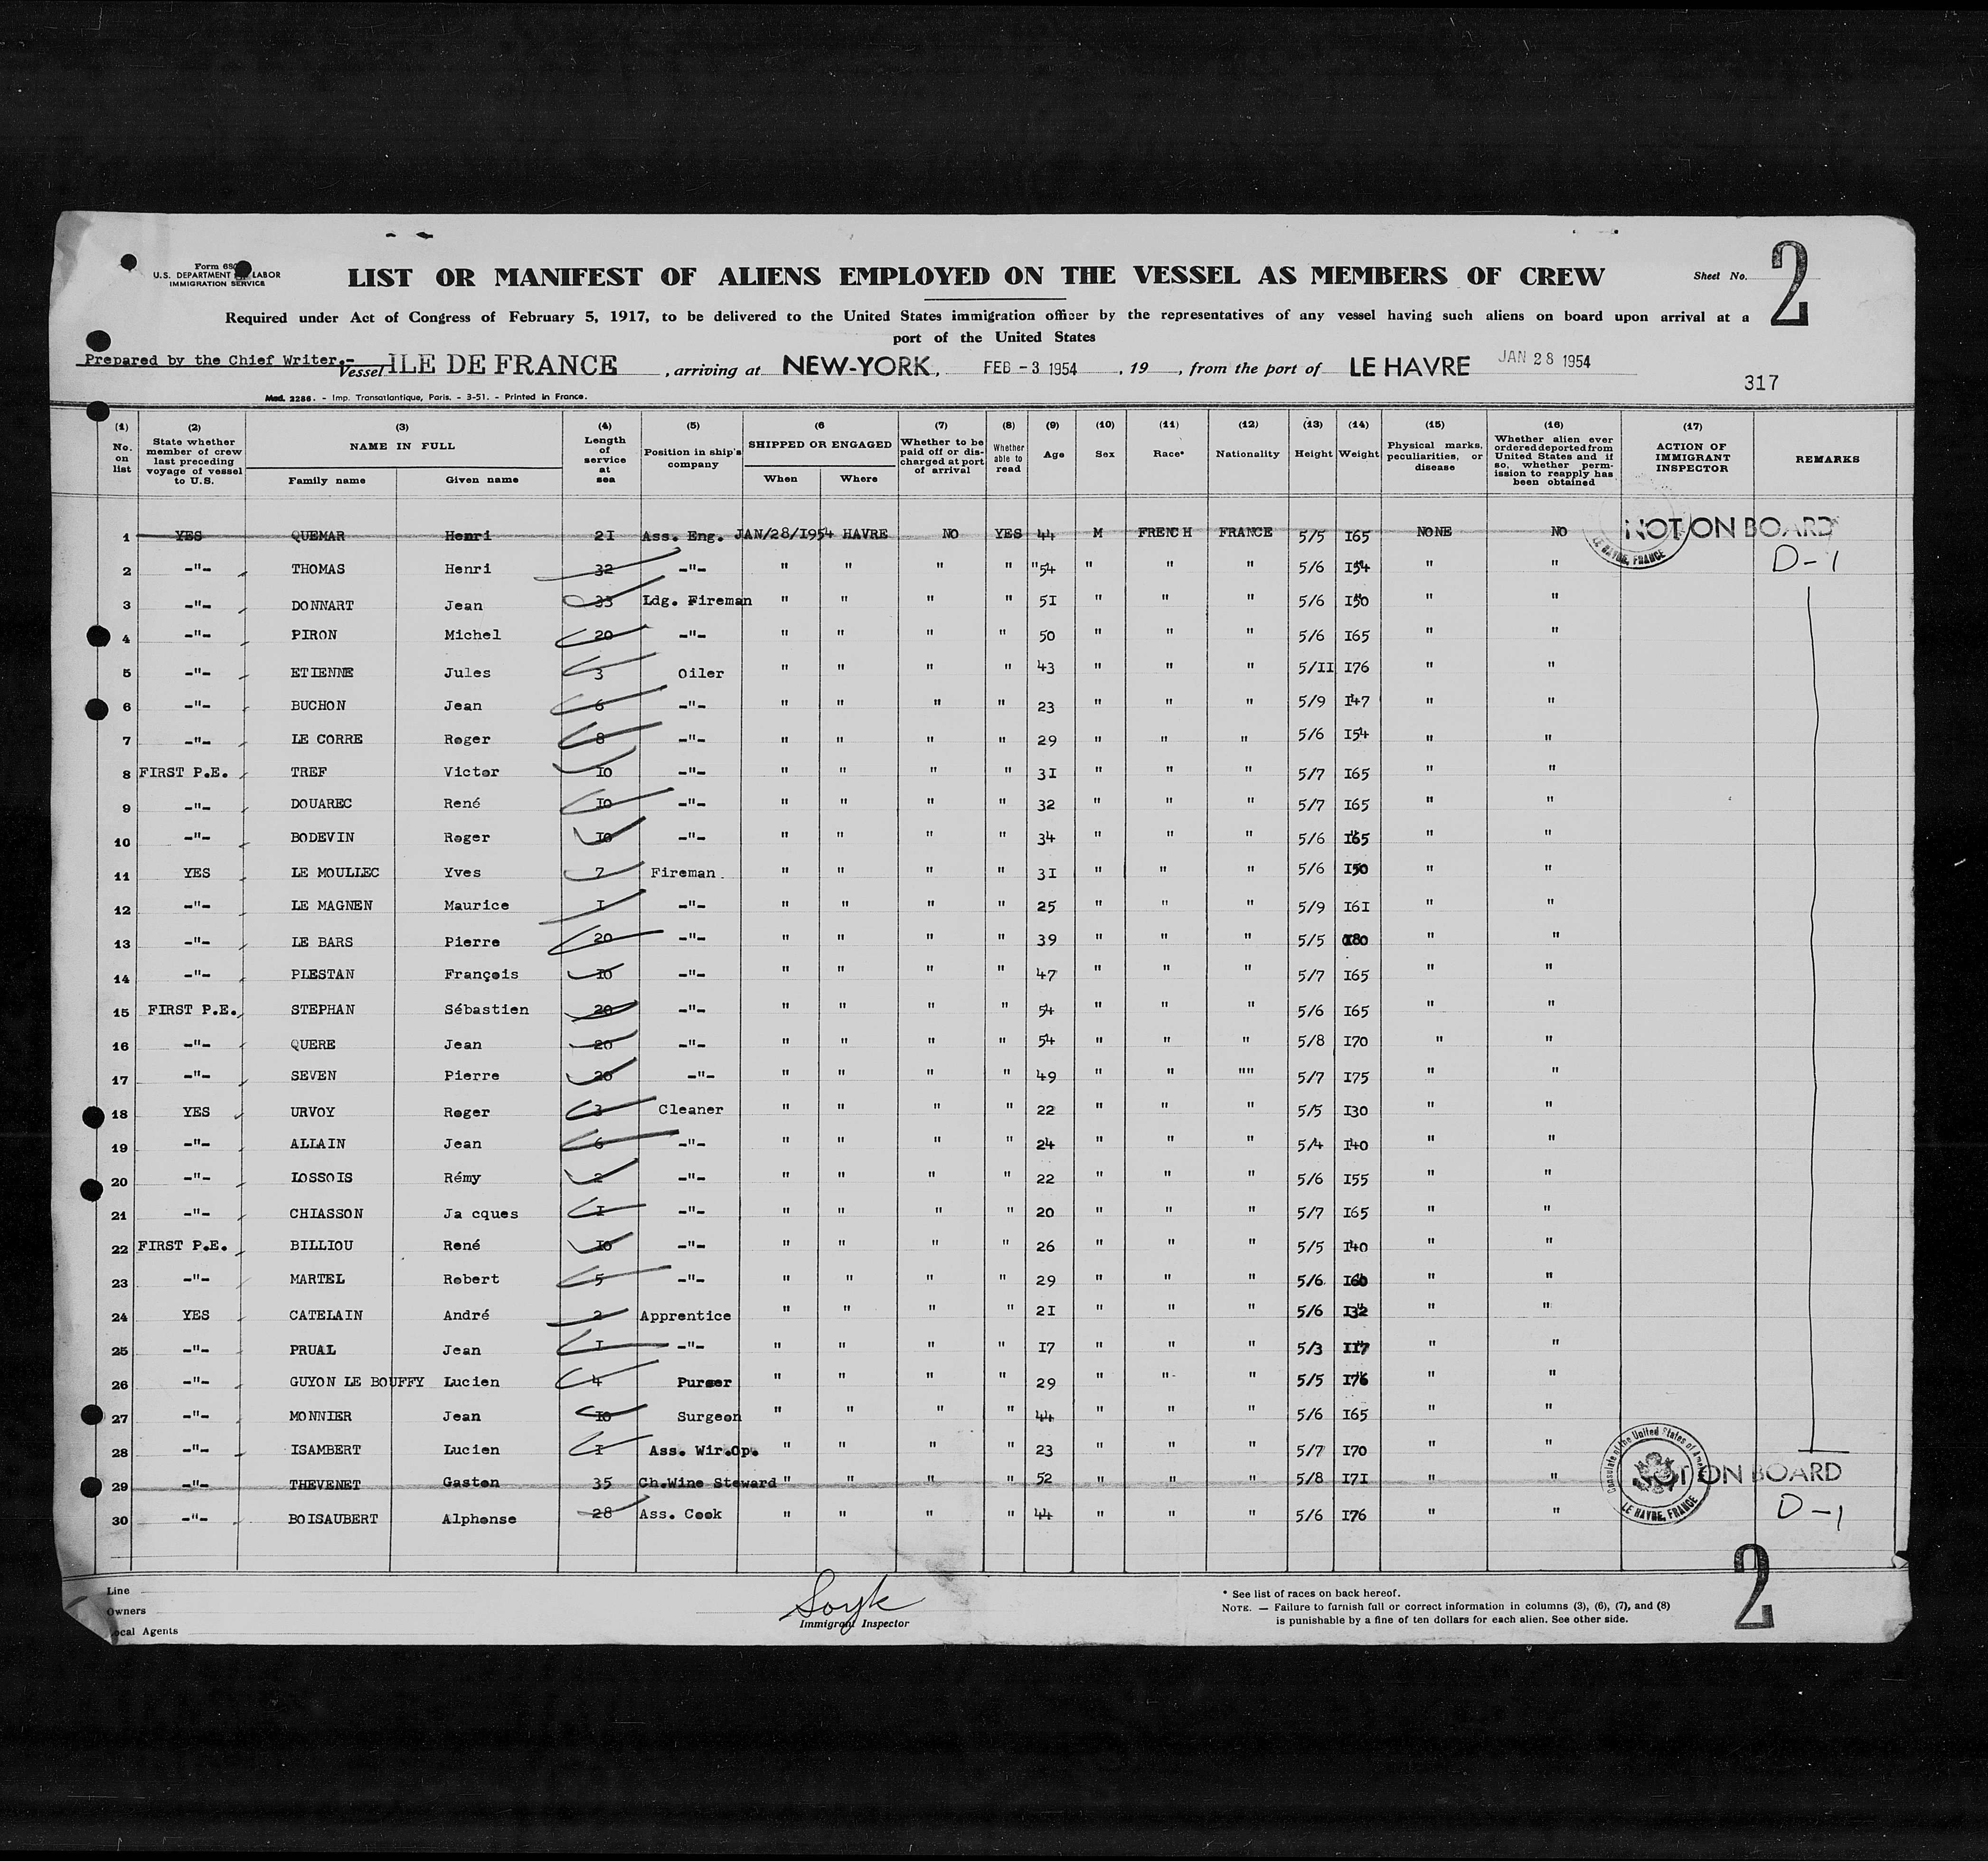 Form 680
U.S. DEPARTMENT OF LABOR
IMMIGRATION SERVICE
LIST OR MANIFEST OF ALIENS EMPLOYED ON THE VESSEL AS MEMBERS OF CREW
Sheet No. 2
Required under Act of Congress of February 5, 1917, to be delivered to the United States immigration officer by the representatives of any vessel having such aliens on board upon arrival at a
port of the United States
Prepared by the Chief Writer.-
Vessel ILE DE FRANCE, arriving at NEW-YORK, FEB -3 1954, 19, from the port of LE HAVRE JAN 28 1954
317
Mod. 2286. - Imp. Transatlantique, Paris. - 3-51. - Printed in France.
(1) No. on list (2) State whether member of crew last preceding voyage of vessel to U.S. (3) NAME IN FULL Family name Given name (4) Length of service at sea (5) Position in ship's company (6 SHIPPED OR ENGAGED When Where (7) Whether to be paid off or discharged at port of arrival (8) Whether able to read (9) Age (10) Sex (11) Race* (12) Nationality (13) Height (14) Weight (15) Physical marks, peculiarities, or disease (16) Whether alien ever ordered deported from United States and if so, whether permission to reapply has been obtained (17) ACTION OF IMMIGRANT INSPECTOR REMARKS
1 YES QUEMAR Henri 21 Ass. Eng. JAN/28/1954 HAVRE NO YES 44 M FRENCH FRANCE 5/5 165 NONE NO NOT ON BOARD
LE HAVRE, FRANCE
2 -"- THOMAS Henri 32 -"- " " " " "54 " " " 5/6 154 " " D-1
3 -"- DONNART Jean 33 Ldg. Fireman " " " " 51 " " " 5/6 150 " "
4 -"- PIRON Michel 20 -"- " " " " 50 " " " 5/6 165 " "
5 -"- ETIENNE Jules 3 Oiler " " " " 43 " " " 5/11 176 " "
6 -"- BUCHON Jean 6 -"- " " " " 23 " " " 5/9 147 " "
7 -"- LE CORRE Roger 8 -"- " " " " 29 " " " 5/6 154 " "
8 FIRST P.E. TREF Victor 10 -"- " " " " 31 " " " 5/7 165 " "
9 -"- DOUAREC René 10 -"- " " " " 32 " " " 5/7 165 " "
10 -"- BODEVIN Roger 10 -"- " " " " 34 " " " 5/6 165 " "
11 YES LE MOULLEC Yves 7 Fireman " " " " 31 " " " 5/6 150 " "
12 -"- LE MAGNEN Maurice 1 -"- " " " " 25 " " " 5/9 161 " "
13 -"- LE BARS Pierre 20 -"- " " " " 39 " " " 5/5 " "
14 -"- PLESTAN François 10 -"- " " " " 47 " " " 5/7 165 " "
15 FIRST P.E. STEPHAN Sébastien 20 -"- " " " " 54 " " " 5/6 165 " "
16 -"- QUERE Jean 20 -"- " " " " 54 " " " 5/8 170 " "
17 -"- SEVEN Pierre 20 -"- " " " " 49 " " "" 5/7 175 " "
18 YES URVOY Roger 3 Cleaner " " " " 22 " " " 5/5 130 " "
19 -"- ALLAIN Jean 6 -"- " " " " 24 " " " 5/4 140 " "
20 -"- LOSSOIS Rémy 2 -"- " " " " 22 " " " 5/6 155 " "
21 -"- CHIASSON Ja cques 1 -"- " " " " 20 " " " 5/7 165 " "
22 FIRST P.E. BILLIOU René 10 -"- " " " " 26 " " " 5/5 140 " "
23 -"- MARTEL Robert 5 -"- " " " " 29 " " " 5/6 160 " "
24 YES CATELAIN André 2 Apprentice " " " " 21 " " " 5/6 132 " "
25 -"- PRUAL Jean 1 -"- " " " " 17 " " " 5/3 117 " "
26 -"- GUYON LE BOUFFY Lucien 4 Purser " " " " 29 " " " 5/5 176 " "
27 -"- MONNIER Jean 10 Surgeon " " " " 44 " " " 5/6 165 " "
28 -"- ISAMBERT Lucien 1 Ass. Wir.Op. " " " " 23 " " " 5/7 170 " "
29 -"- THEVENET Gaston 35 Ch.Wine Steward " " " " 52 " " " 5/8 171 " " NOT ON BOARD
Consulate of the United States of America
LE HAVRE, FRANCE
30 -"- BOISAUBERT Alphonse 28 Ass. Cook " " " " 44 " " " 5/6 176 " " D-1
2
Line
Owners
Local Agents
Soyk
Immigrant Inspector
* See list of races on back hereof.
NOTE. — Failure to furnish full or correct information in columns (3), (6), (7), and (8)
is punishable by a fine of ten dollars for each alien. See other side.